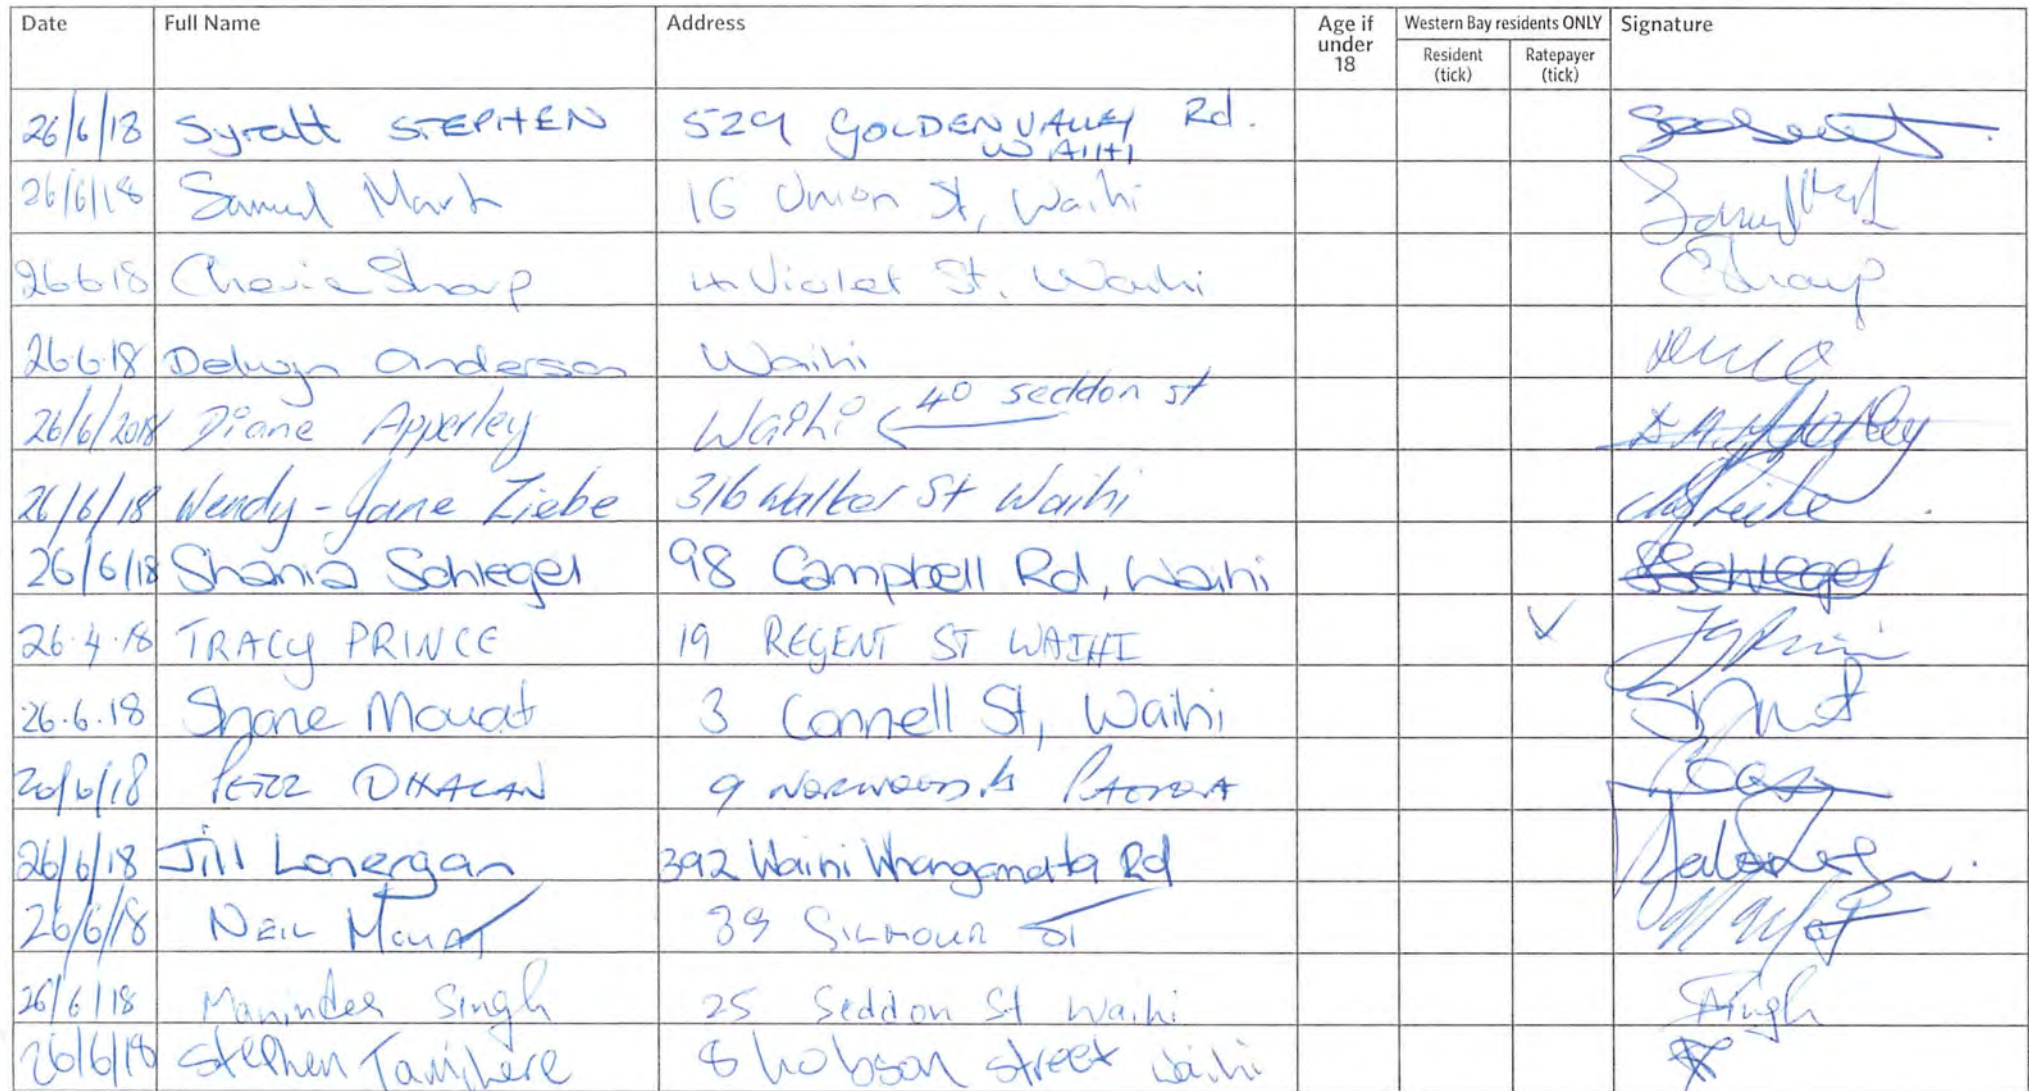 Date Full Name Address Age if under 18 Western Bay residents ONLY Signature
Resident (tick) Ratepayer (tick)
26/6/18 Syratt STEPHEN 529 GOLDEN VALLEY Rd. WAIHI
26/6/18 Samuel Mark 16 Union St, Waihi
26.6.18 Cherie Sharp 4 Violet St, Waihi CSharp
26.6.18 Delwyn Anderson Waihi
26/6/2018 Diane Apperley Waihi 40 seddon st
26/6/18 Wendy-Jane Ziebe 316 Walker St Waihi
26/6/18 Shania Schlegel 98 Campbell Rd, Waihi SSchlegel
26.4.18 TRACY PRINCE 19 REGENT ST WAIHI ✓
26.6.18 Shane Mouat 3 Connell St, Waihi
26/6/18 9 PAEROA
26/6/18 Jill Lonergan 392 Waihi Whangamata Rd
26/6/18 NEIL MOUAT 39 GILMOUR ST
26/6/18 Maninder Singh 25 Seddon St Waihi Singh
26/6/18 Stephen Tamihere 8 hobson street waihi